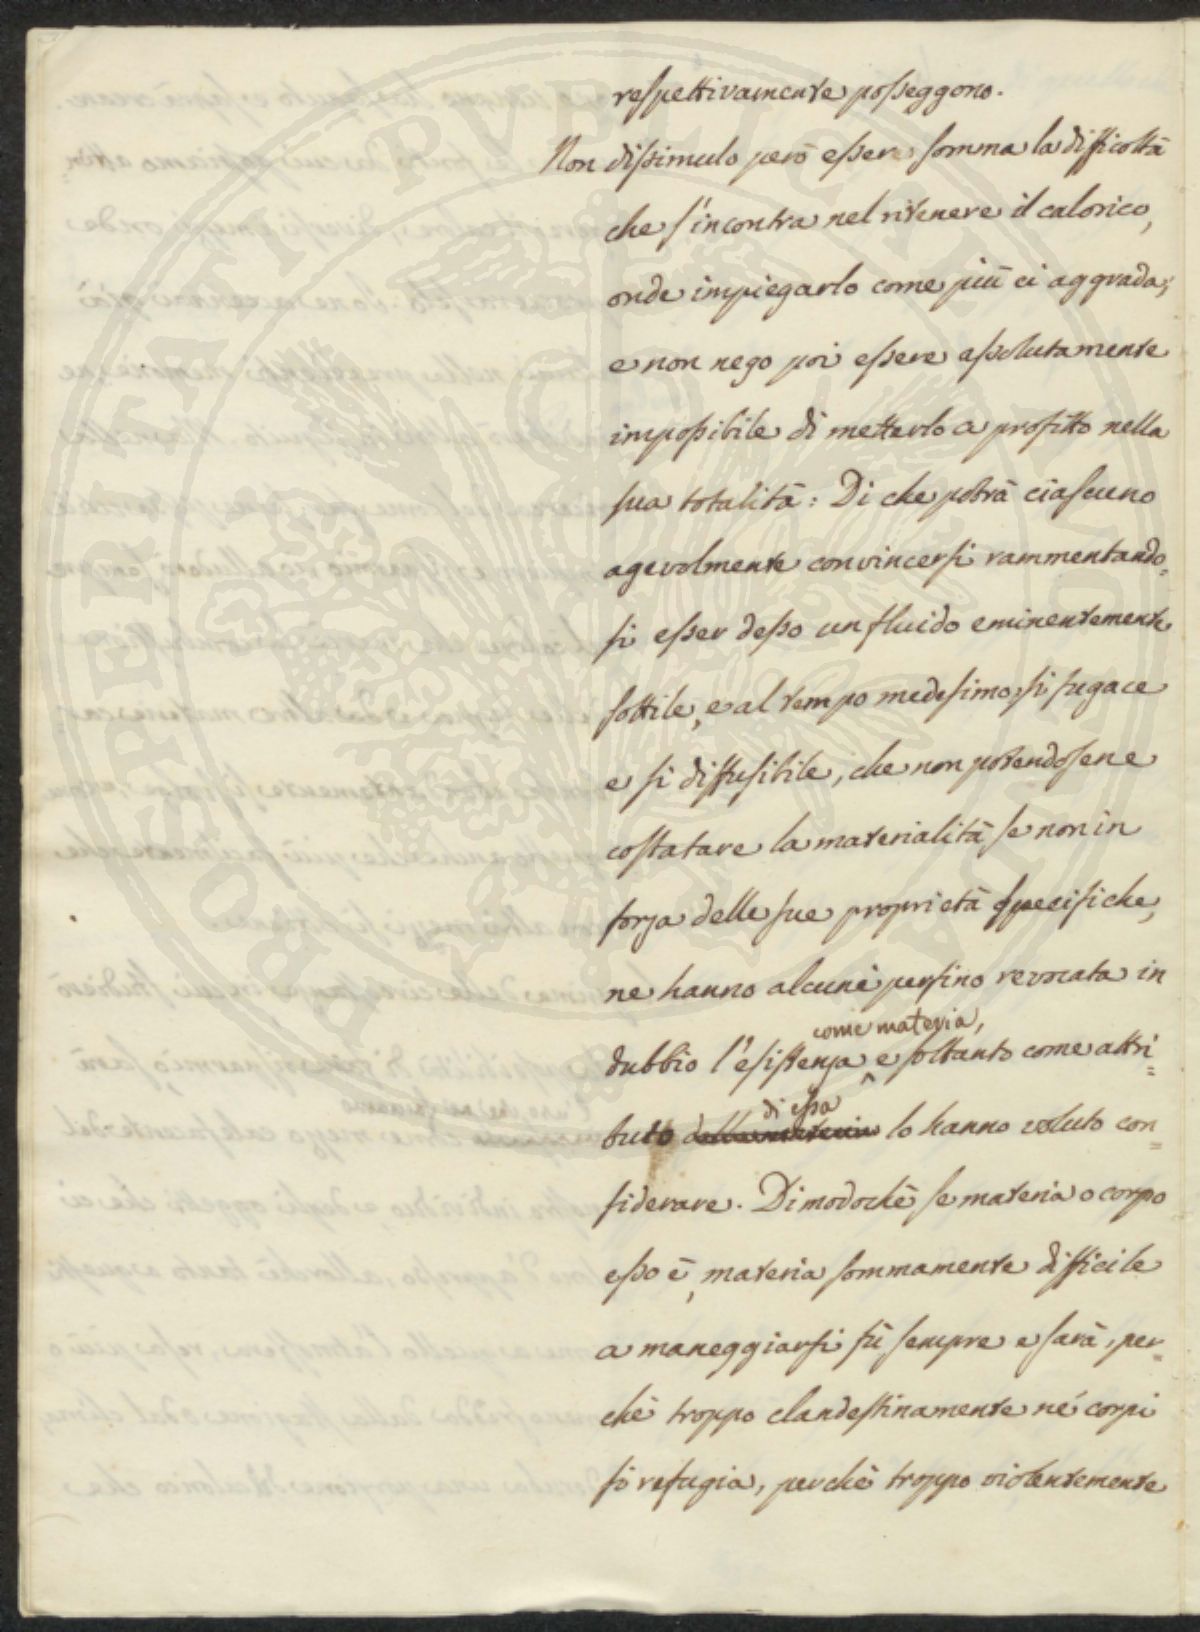 respettivamente posseggono.
Non dissimulo però essere somma la difficoltà
che s'incontra nel ritenere il calorico,
onde impiegarlo come più ci aggrada;
e non nego poi essere assolutamente
impossibile di metterlo a profitto nella
sua totalità: Di che potrà ciascuno
agevolmente convincersi rammentando=
si esser desso un fluido eminentemente
sottile, e al tempo medesimo, si fugace
e si diffusibile, che non potendosene
costatare la materialità se non in
forza delle sue proprietà specifiche,
ne hanno alcuni perfino revocata in
come materia,
dubbio l'esistenza e soltanto come attri=
di essa
buto della materia lo hanno voluto con=
siderare. Dimodochè se materia o corpo
esso è, materia sommamente difficile
a maneggiarsi fù sempre e sarà, per=
chè troppo clandestinamente ne' corpi
si refugia, perchè troppo violentemente
PROSPERITATI PVBLICAE AVGENDAE